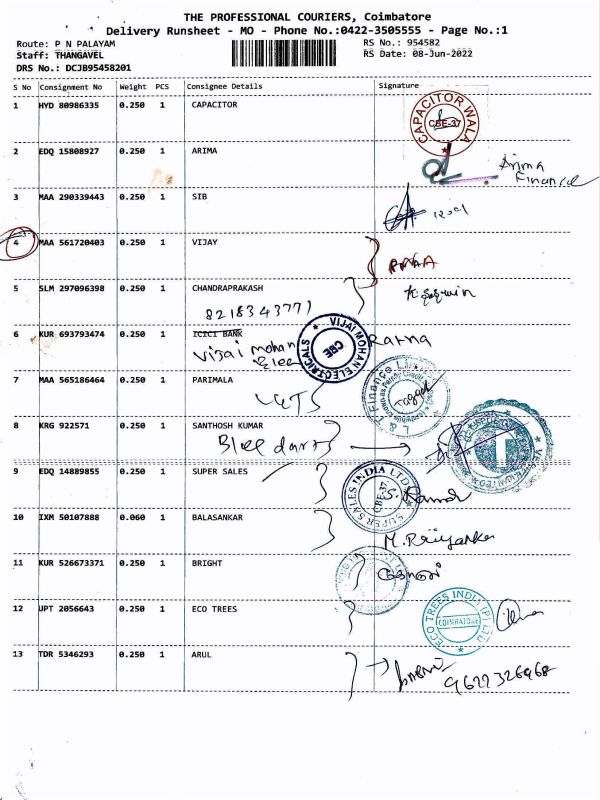 THE PROFESSIONAL COURIERS, Coimbatore
Delivery Runsheet - MO - Phone No.:0422-3505555 - Page No.:1
Route: P N PALAYAM
Staff: THANGAVEL
DRS No.: DCJB95458201
RS No.: 954582
RS Date: 08-Jun-2022
S No Consignment No Weight PCS Consignee Details Signature
1 HYD 80986335 0.250 1 CAPACITOR
CAPACITOR WALA CBE-37
2 EDQ 15808927 0.250 1 ARIMA
Arima
3 MAA 290339443 0.250 1 SIB
4 MAA 561720403 0.250 1 VIJAY
5 SLM 297096398 0.250 1 CHANDRAPRAKASH
8218343771
6 KUR 693793474 0.250 1 ICICI BANK
Vijai mohan Ratna
VIJAI MOHAN ELECTRICALS CBE
7 MAA 565186464 0.250 1 PARIMALA
L & T Finance
8 KRG 922571 0.250 1 SANTHOSH KUMAR
Blee dart
9 EDQ 14889855 0.250 1 SUPER SALES
SUPER SALES INDIA LTD CBE-37
10 IXM 50107888 0.060 1 BALASANKAR
M. Priyanka
11 KUR 526673371 0.250 1 BRIGHT
12 UPT 2056643 0.250 1 ECO TREES
ECO TREES INDIA (P) LTD COIMBATORE
13 TDR 5346293 0.250 1 ARUL
9622326968